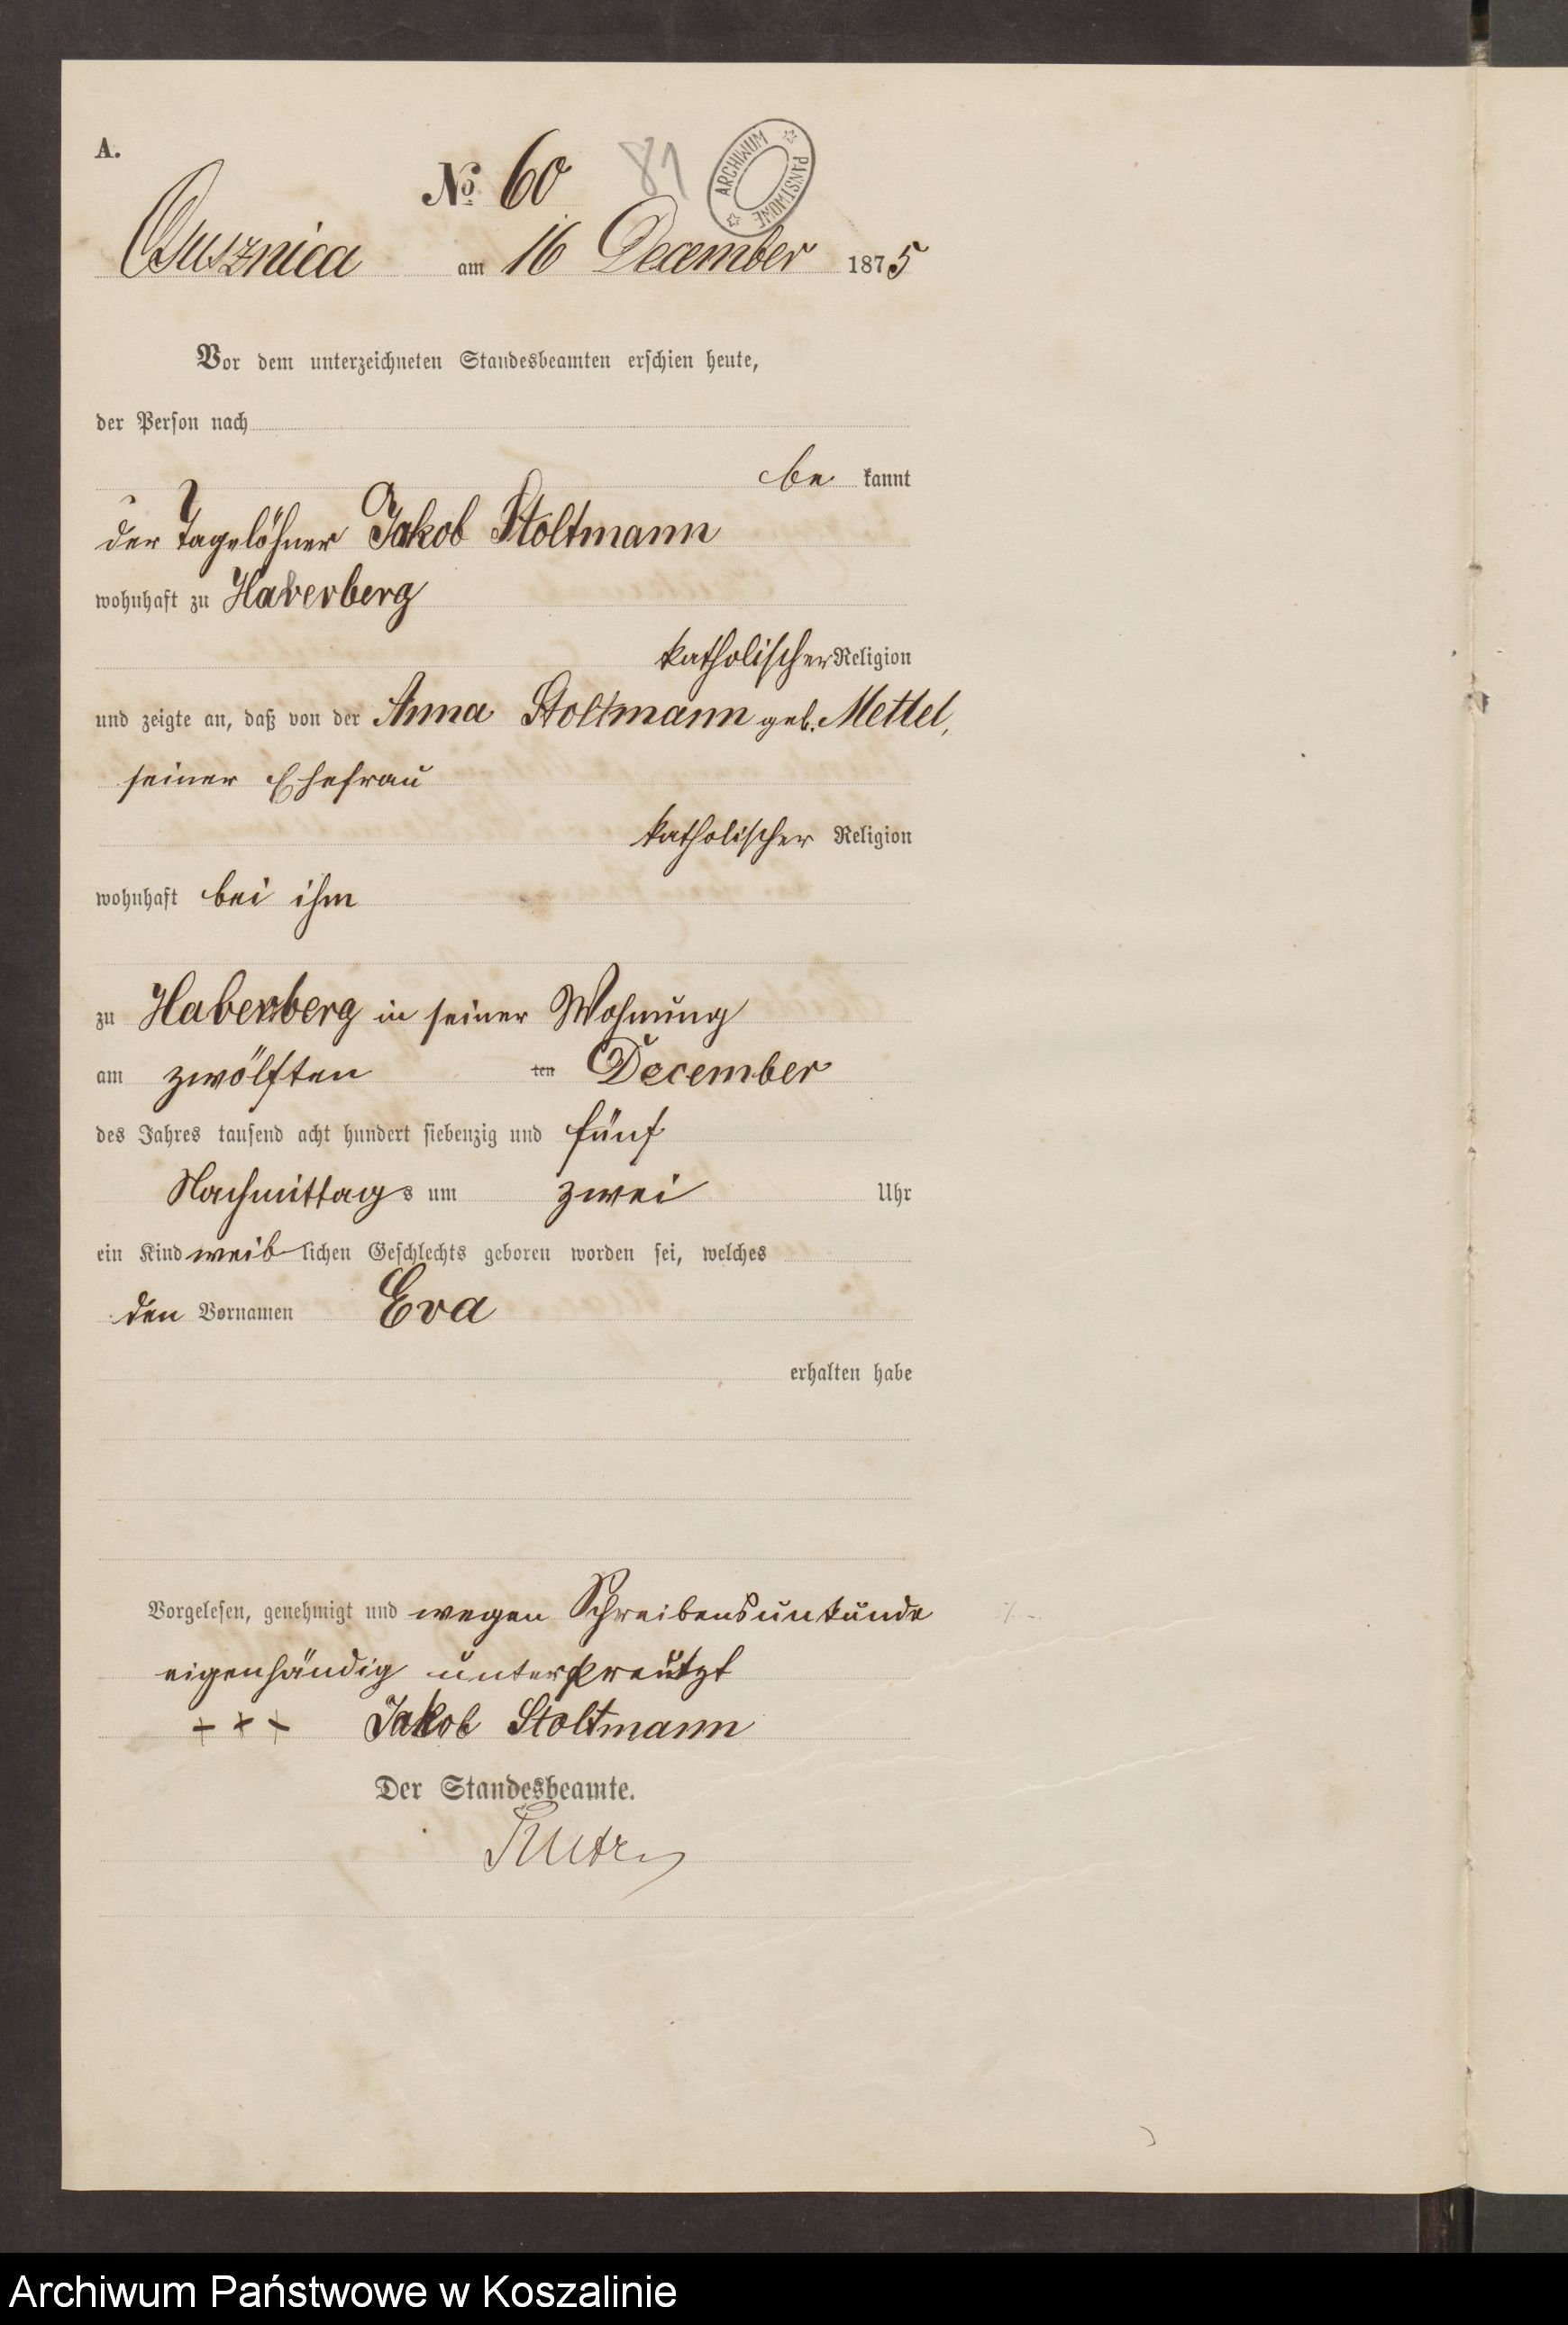 A.
№ 60 81
ARCHIWUM PAŃSTWOWE
Ossusznica am 16 December 1875
Vor dem unterzeichneten Standesbeamten erschien heute,
der Person nach
be kannt
der Tagelöhner Jakob Stoltmann
wohnhaft zu Haberberg
katholischer Religion
und zeigte an, daß von der Anna Stoltmann geb. Mettel,
seiner Ehefrau
katholischer Religion
wohnhaft bei ihm
zu Haberberg in seiner Wohnung
am zwölften ten December
des Jahres tausend acht hundert siebenzig und fünf
Nachmittags um zwei Uhr
ein Kind weiblichen Geschlechts geboren worden sei, welches
den Vornamen Eva
erhalten habe
Vorgelesen, genehmigt und wegen Schreibensunkunde
eigenhändig unterkreutzt
+ + + Jakob Stoltmann
Der Standesbeamte.
Archiwum Państwowe w Koszalinie